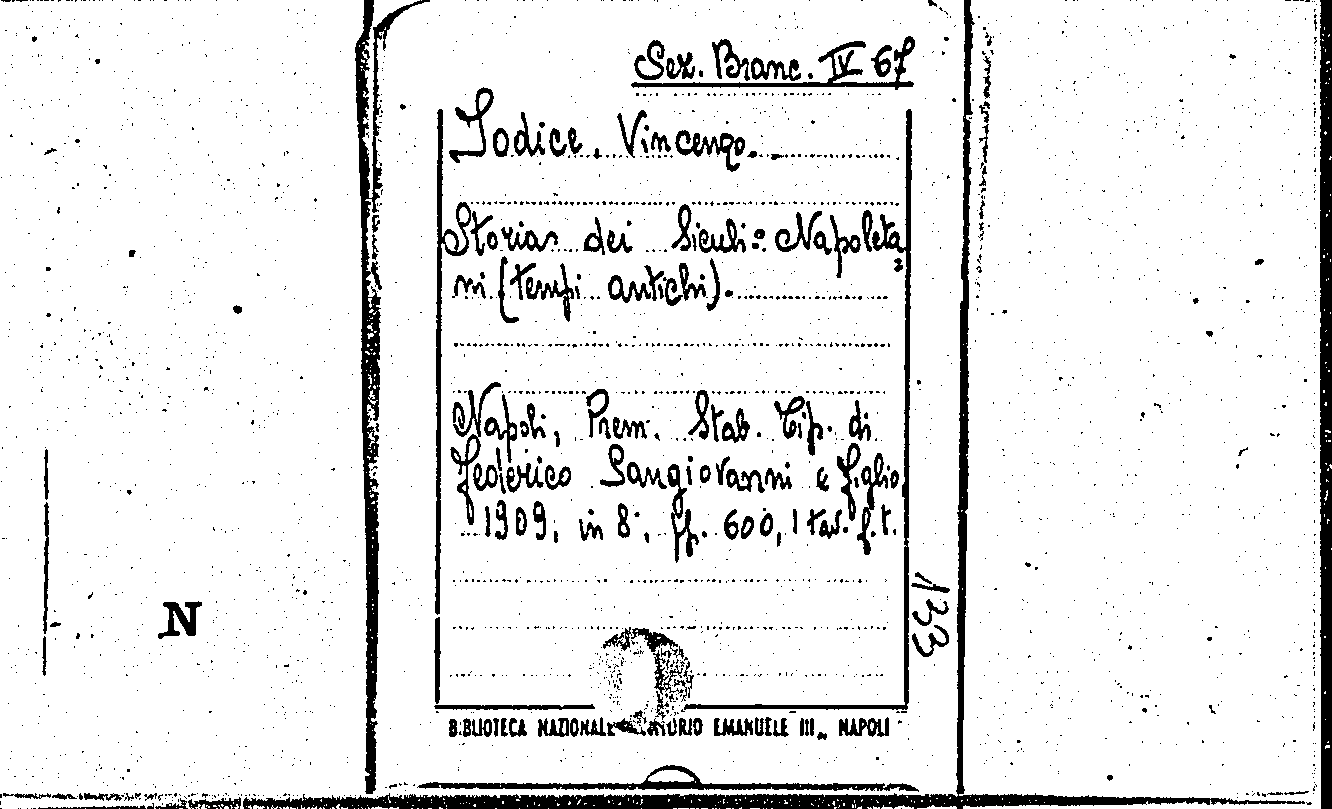 Sez. Branc. IV 67
Jodice, Vincenzo.
Storia dei Siculi = Napoleta=
ni (tempi antichi).
Napoli, Prem. Stab. Tip. di
Federico Sangiovanni e figlio,
1909, in 8°, pp. 600, 1 tav. f. t.
133
N
BIBLIOTECA NAZIONALE VITTORIO EMANUELE III„ NAPOLI